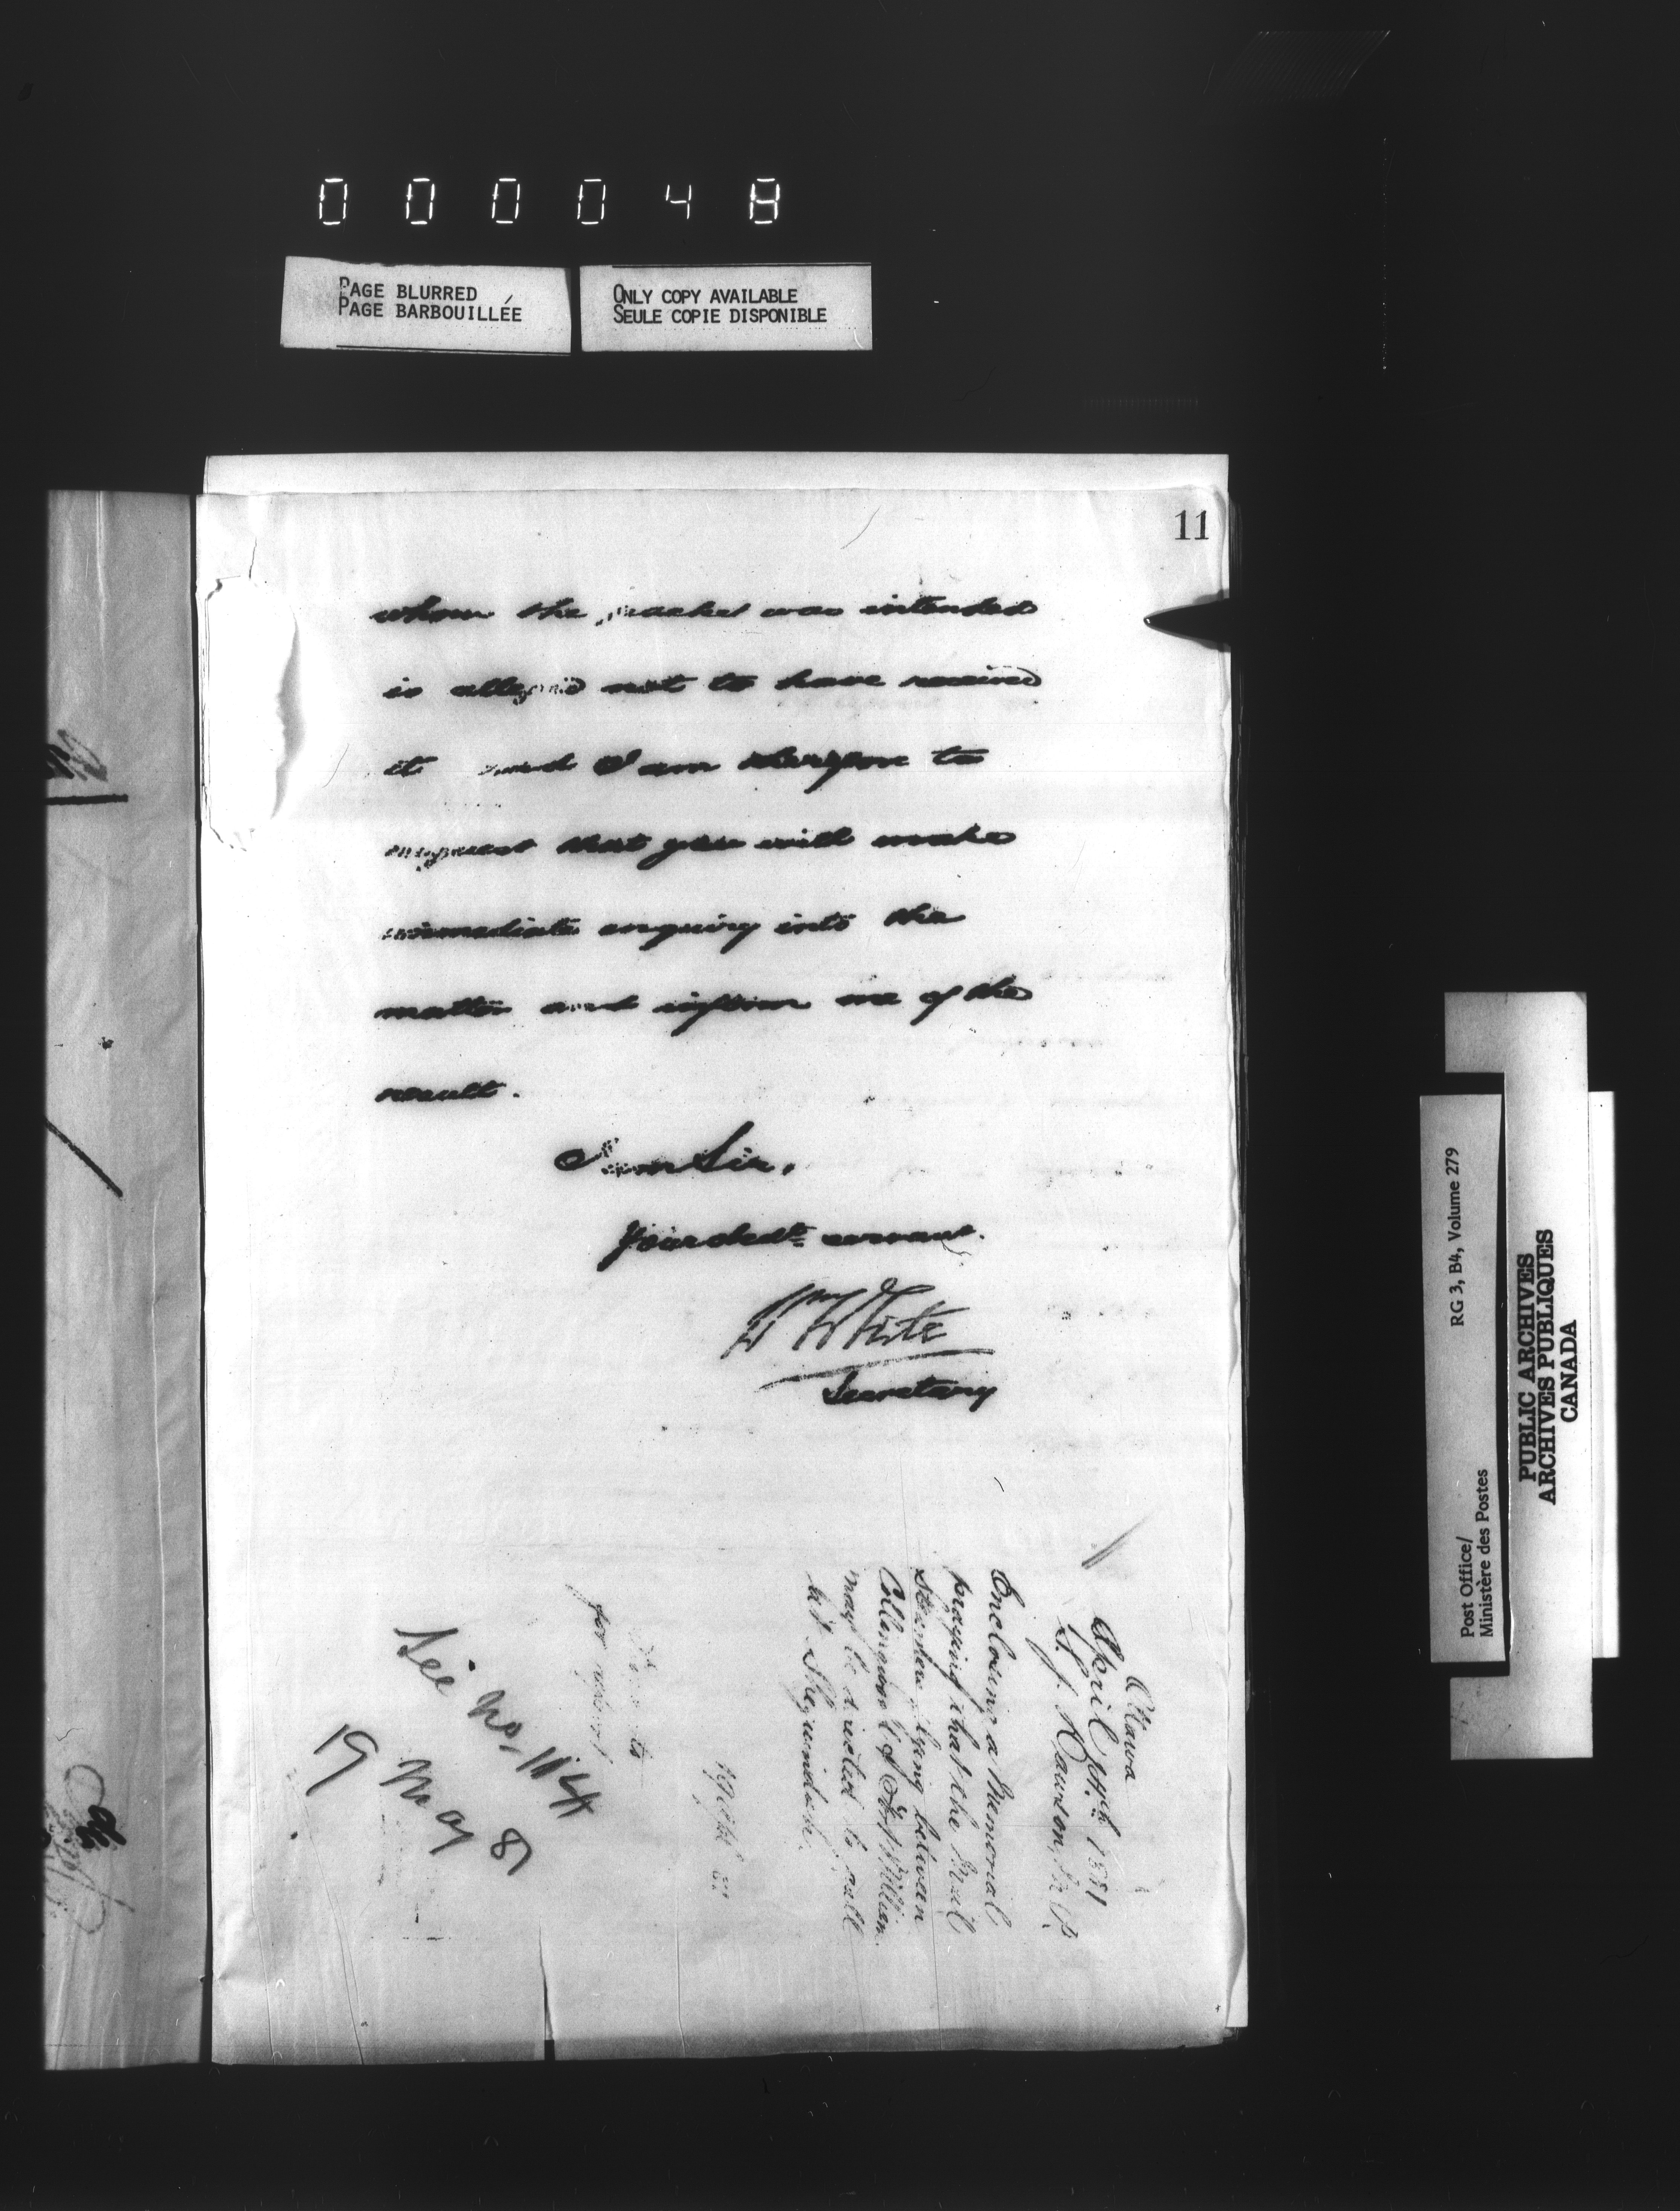 000048
PAGE BLURRED
PAGE BARBOUILLÉE
ONLY COPY AVAILABLE
SEULE COPIE DISPONIBLE
11
whom the packet was intended
is alleged not to have received
it and I am therefore to
request that you will make
immediate enquiry into the
matter and inform me of the
result.
I am Sir,
Your obedt. servant.
Wm White
Secretary
Ottawa
April 1881
S. J. Dawson, M.P.
Enclosing a Memorial
praying that the Mail
Steamers plying between
Collingwood & Ft. William
may be directed to call
at Sheguindah.
for report
See No. 1114
19 May 81
RG 3, B4, Volume 279
Post Office/
Ministère des Postes
PUBLIC ARCHIVES
ARCHIVES PUBLIQUES
CANADA